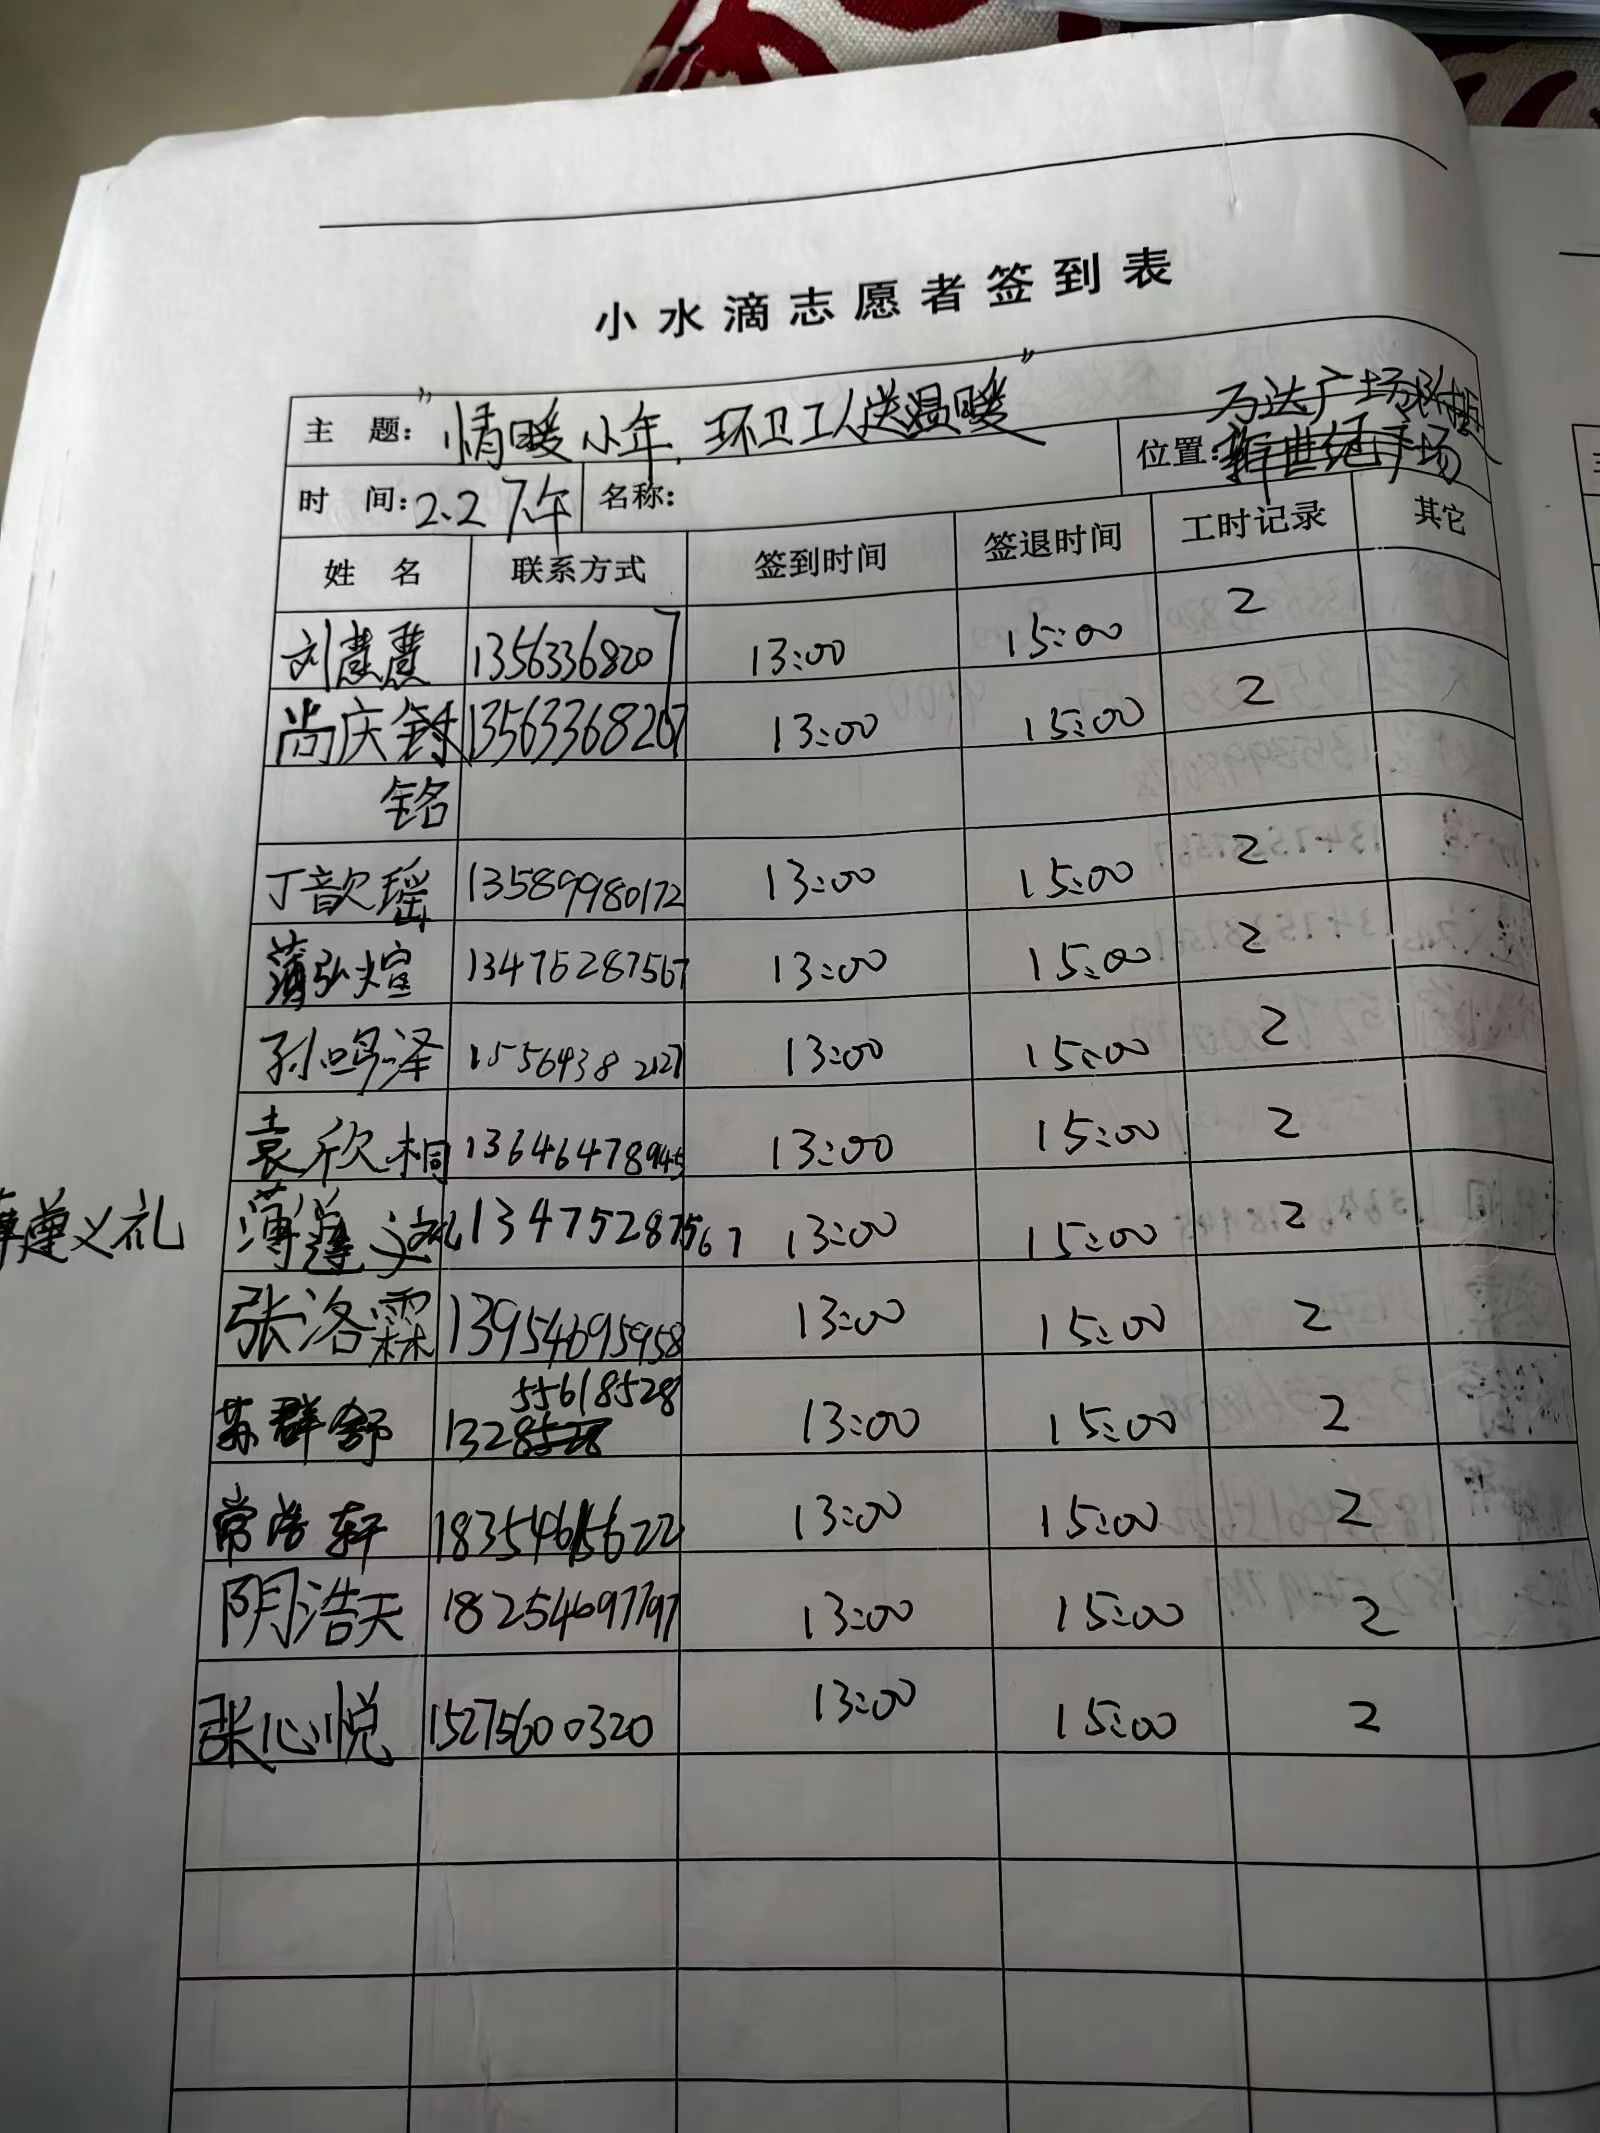 小水滴志愿者签到表
主 题: "情暖小年,环卫工人送温暖" 位置: 万达广场
时 间: 2.2 下午 名称:
姓 名 联系方式 签到时间 签退时间 工时记录 其它
刘慧慧 13563368207 13:00 15:00 2
尚庆 13563368207 13:00 15:00 2
铭
丁歆瑶 13589980172 13:00 15:00 2
薄弘煊 13475287567 13:00 15:00 2
孙鸣泽 15564382127 13:00 15:00 2
袁欣桐 13646478945 13:00 15:00 2
薄 13475287567 13:00 15:00 2
遵义礼
张洛霖 13954695958 13:00 15:00 2
苏群舒 1328 55618528 13:00 15:00 2
常浩轩 18354615622 13:00 15:00 2
阴浩天 18254697797 13:00 15:00 2
张心悦 15275600320 13:00 15:00 2